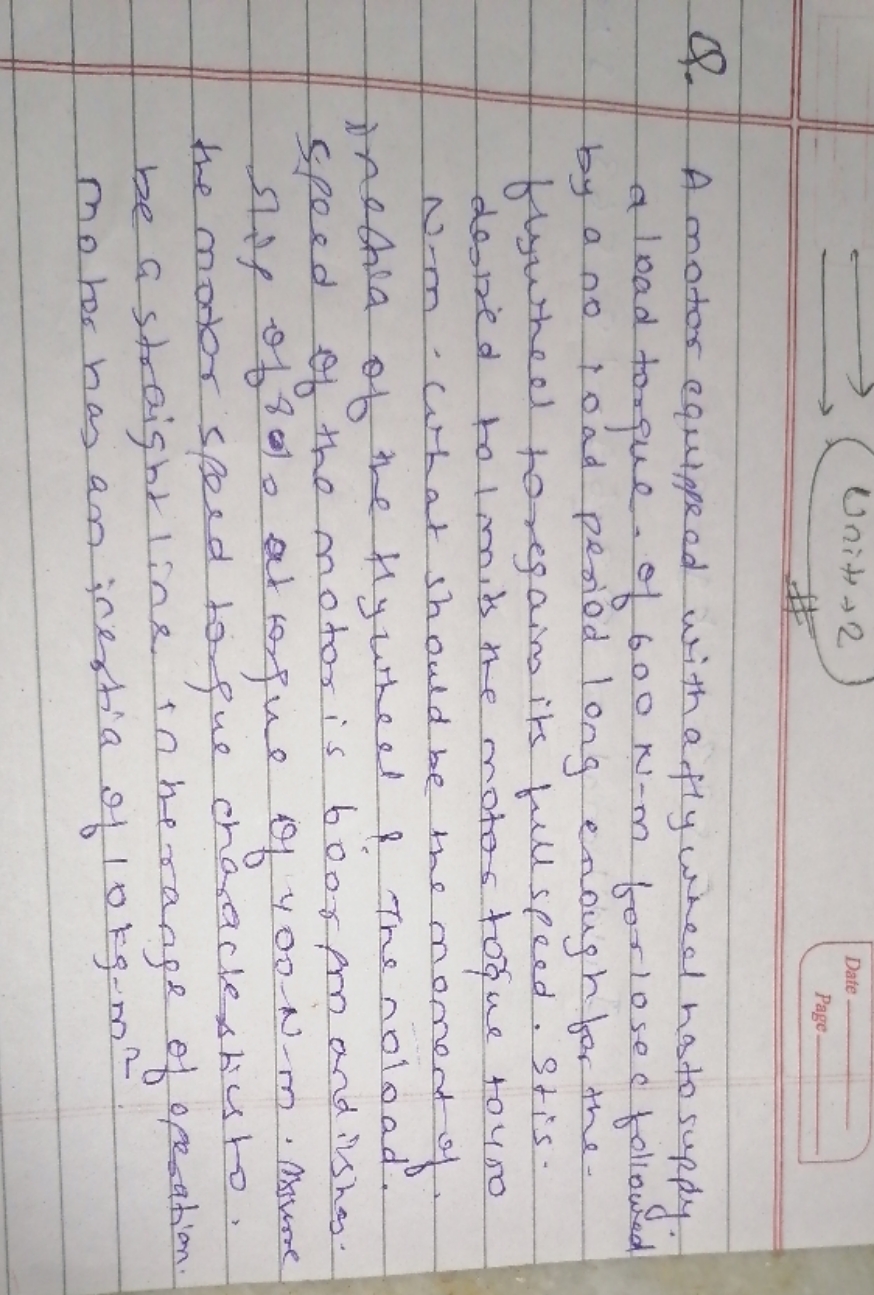 Unit → 2
Date
Page
Q. A motor equipped with a flywheel has to supply.
a load torque. of 600 N-m for 10 sec followed
by a no load period long enough for the-
flywheel to regain its full speed. It is.
desired to limits the motor toque to 450
N-m. What should be the moment of.
inertia of the flywheel? The noload.
speed of the motor is 600rpm and ithas.
slip of 8% at torque of 400-N-m. Assume
the motor speed torque characteristics to.
be a straight line in the range of operation.
Motor has an inertia of 10 kg-m²